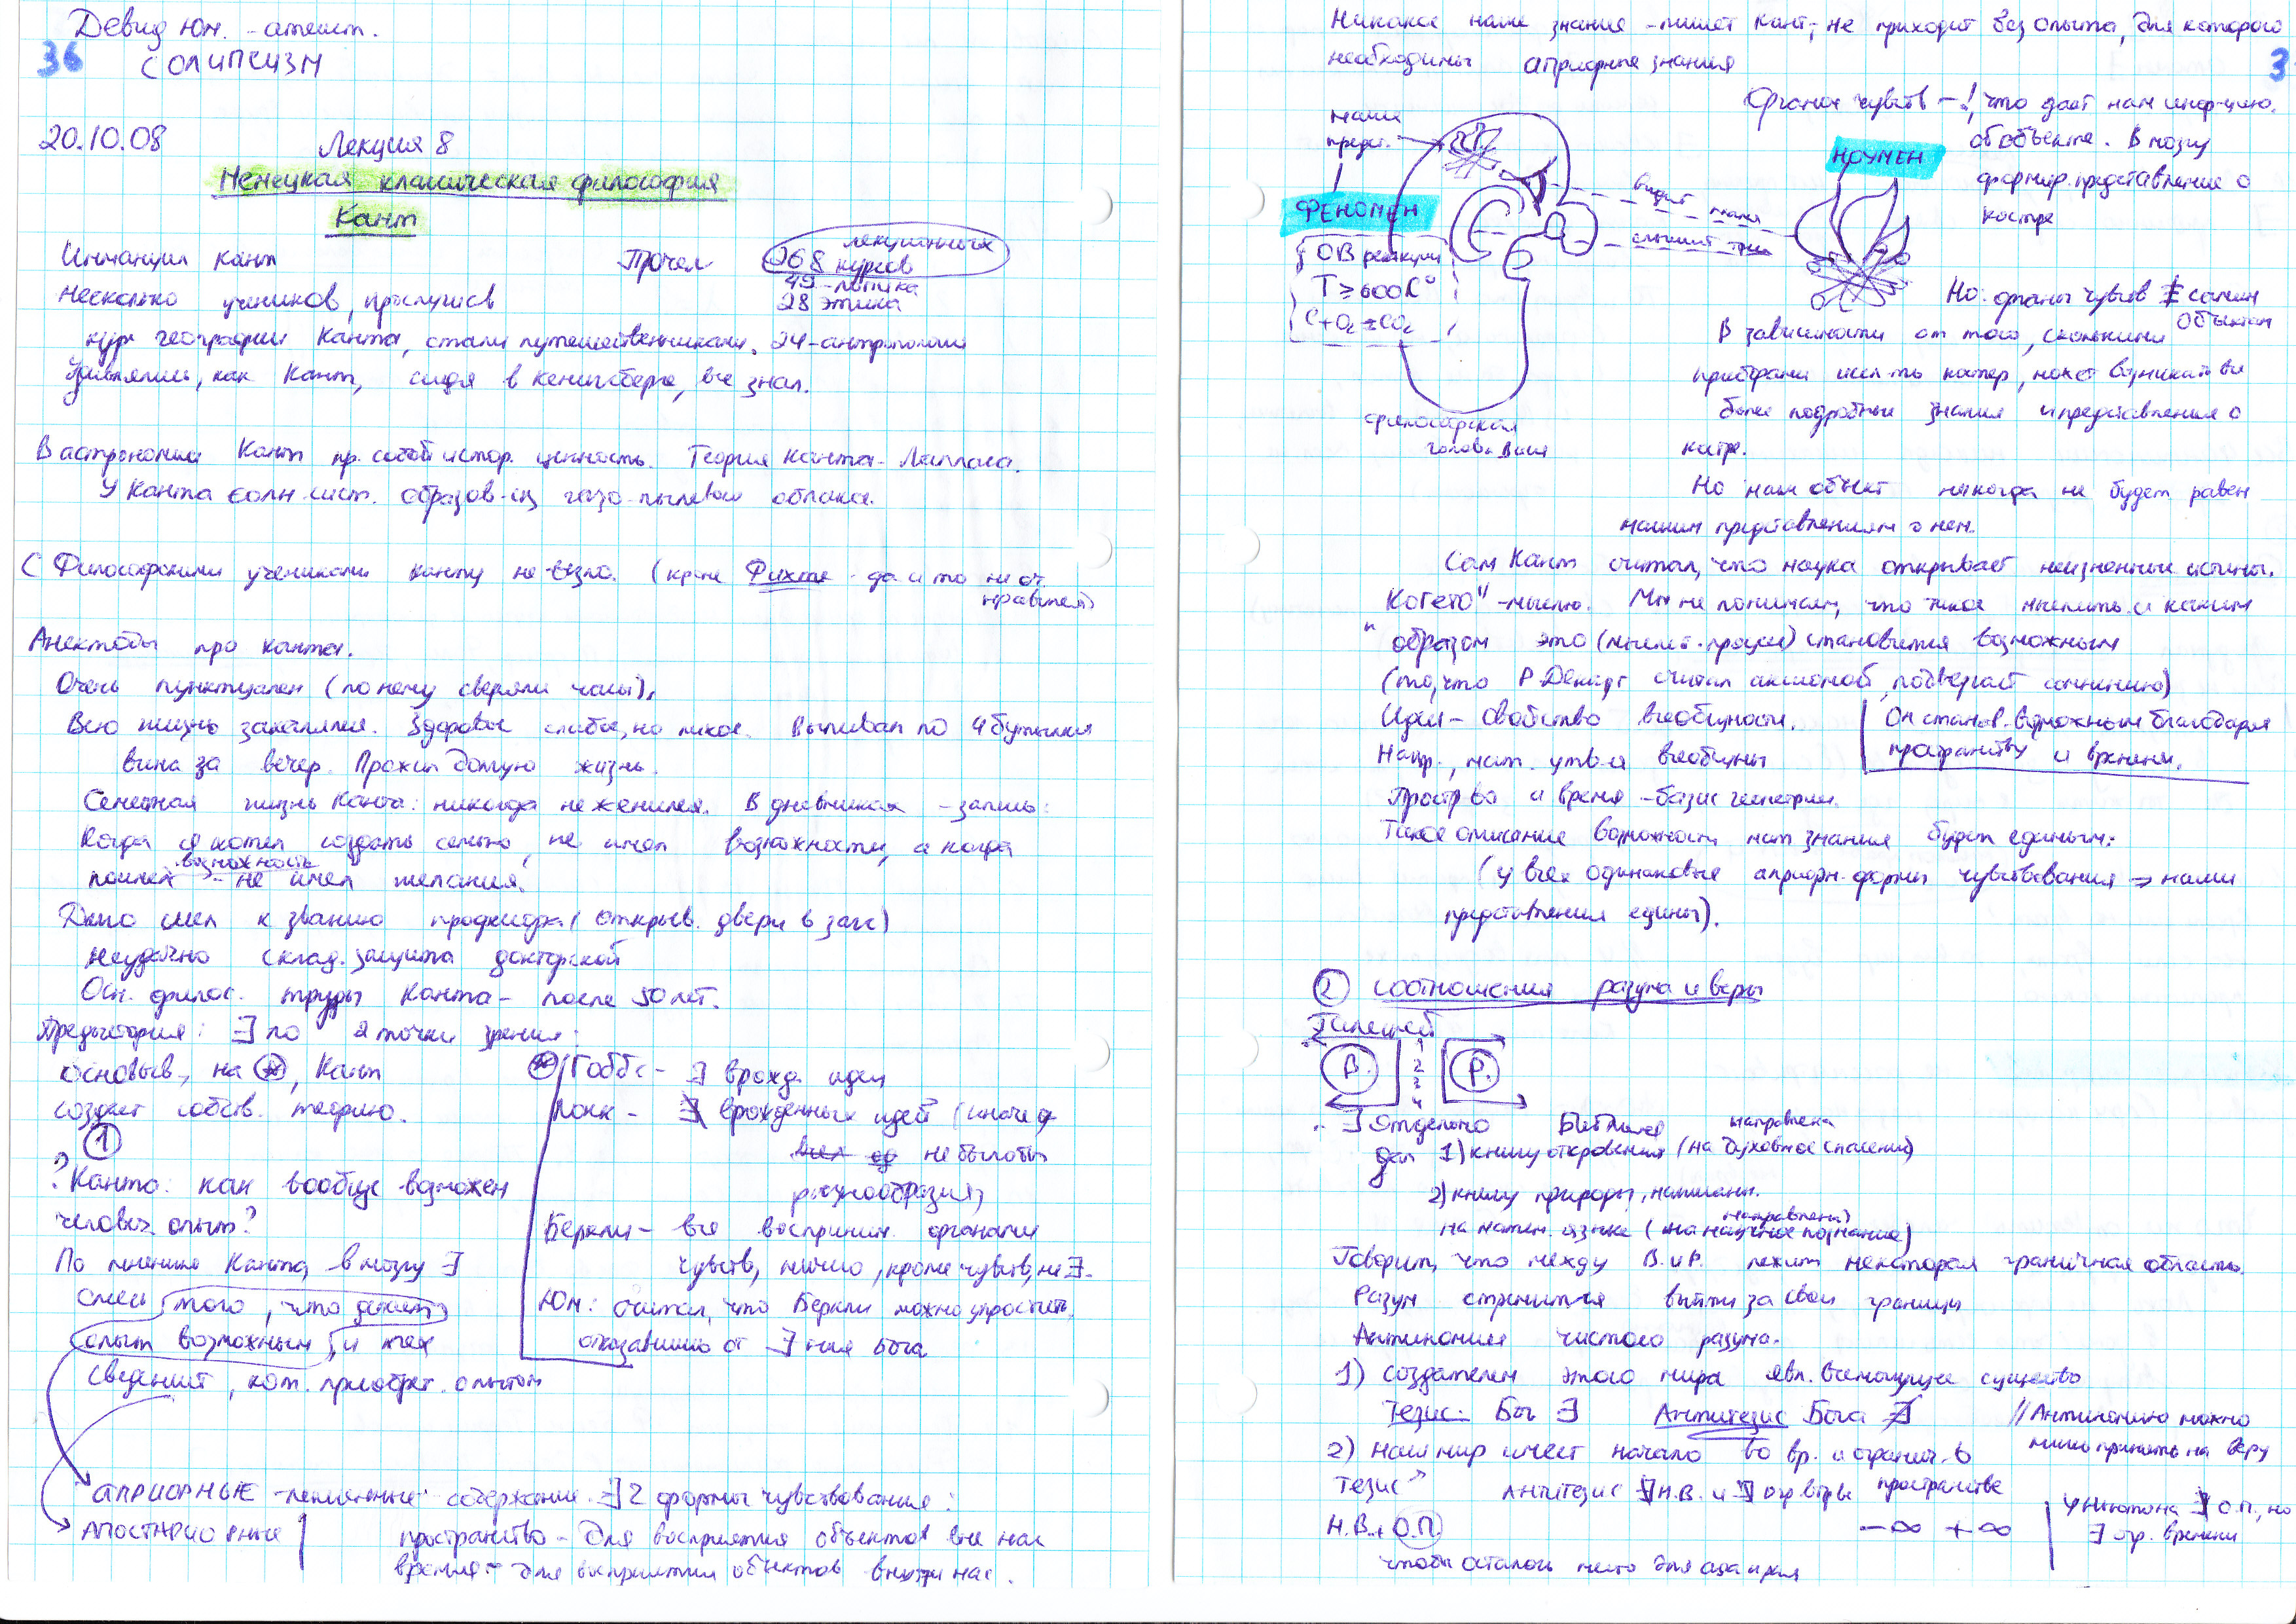 Девид Юм. - атеист.
36
СОЛИПСИЗМ
20.10.08 Лекция 8
Немецкая классическая философия
Кант
Иммануил Кант Прочел 268 лекционных курсов
49 - логика
28 этика
несколько учеников, прослушав
курс географии Канта, стали путешественниками. 24-антропологии
Удивлялись, как Кант, сидя в Кенигсберге, все знал.
В астрономии Кант пр. собой истор. ценность. Теория Канта-Лапласа.
У Канта солн. сист. образов-сь из газо-пылевого облака.
С Философскими учениками Канту не везло. (кроме Фихте - да и то не оч. нравился)
Анекдоты про Канта.
Очень пунктуален (по нему сверяли часы).
Всю жизнь закалялся. Здоровье слабое, но Выпивал по 4 бутылки
вина за вечер. Прожил долгую жизнь.
Семейная жизнь Канта: никогда не женился. В дневниках - запись:
Когда я хотел создать семью, не имел возможности, а когда
возможность
- не имел желания.
Долго шел к званию профессора (открыв. двери в зал)
неудачно склад. защита докторской
Осн. филос. труды Канта - после 50 лет.
Предыстория: ∃ по 2 точки зрения:
основыв. на ⊛, Кант
создает собств. теорию.
⊛ Гоббс - ∃ врожд. идеи
Локк - ∄ врожденных идей (иначе
не было бы
разнообразия)
Беркли - все восприним. органами
чувств, ничего, кроме чувств, не ∃.
Юм: считал, что Беркли можно упростить,
отказавшись от ∃ния Бога
①
? Канта: как вообще возможен
человеч. опыт?
По мнению Канта, в мозгу ∃
смесь того, что делает
опыт возможным, и тех
сведений, кот. приобрет. опытом
АПРИОРНЫЕ содержание. ∃ 2 формы чувствования:
АПОСТЕРИОРНЫЕ
пространство - для восприятия объектов вне нас
время - для восприятия объектов внутри нас.
Никакое наше знание - пишет Кант, - не приходит без опыта, для которого
необходимы априорные знания
3
Органы чувств - ! что дает нам инф-цию.
об объекте. В мозгу
формир. представление о
костре
наши
предст.
ФЕНОМЕН
НОУМЕН
видит пламя
слышит треск
ОВ реакции
T ≥ 600 C°
C+O₂=CO₂
философская
голова Васи
Но: органы чувств ≠ самим
объектам
В зависимости от того, сколькими
приборами костер, может возникать все
более подробные знания и представление о
костре.
Но наш объект никогда не будет равен
нашим представлениям о нем.
Сам Кант считал, что наука открывает неизменные истины.
"Когето" - мыслю. Мы не понимаем, что такое мыслить и каким
образом это (мыслит. процесс) становится возможным
(то, что Р. Декарт считал аксиомой, подвергает сомнению)
Идеи - свойство всеобщности.
Напр., мат. утв-я всеобщны
Он станов. возможным благодаря
пространству и времени.
Простр-во и время - базис геометрии.
Такое описание возможности мат знания будет единым:
(у всех одинаковые априорн. формы чувствования ⇒ наши
представления едины).
② соотношения разума и веры
Галилей
В. 1 2 3 4 Р.
∃ отдельно
дал 1) книгу откровения (направлена на духовное спасение)
2) книгу природы, написанн.
на матем. языке (направлена на научное познание)
Говорит, что между В. и Р. лежит некоторая граничная область.
Разум стремится выйти за свои границы
Антиномии чистого разума.
1) создателем этого мира явл. всемогущее существо
Тезис: Бог ∃ Антитезис Бога ∄
// Антиномию можно
лишь принять на веру
2) наш мир имеет начало во вр. и огранич. в
пространстве
Тезис Антитезис ∄ Н.В. и ∄
Н.В. + О.П. -∞ +∞
У Ньютона ∄ О.П., но
∃ огр. времени
чтобы осталось место для ада и рая